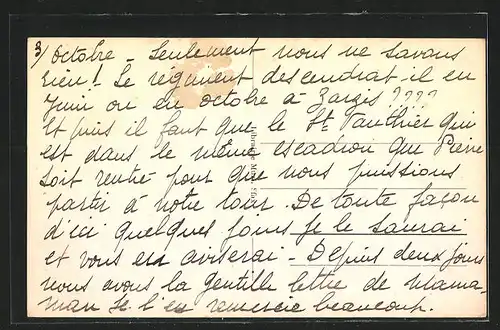 3/ octobre - Seulement nous ne savons
rien! Le régiment descendrat-il en
Juin ou en octobre à Zarzis ????
Et puis il faut que le Lt Vauthier qui
est dans le même escadron que Pierre
soit rentré pour que nous puissions
partir à notre tour. De toute façon
d'ici quelques jours je le saurai
et vous en aviserai - Depuis deux jours
nous avons la gentille lettre de Mama-
man je l'en remercie beaucoup.
Librairie